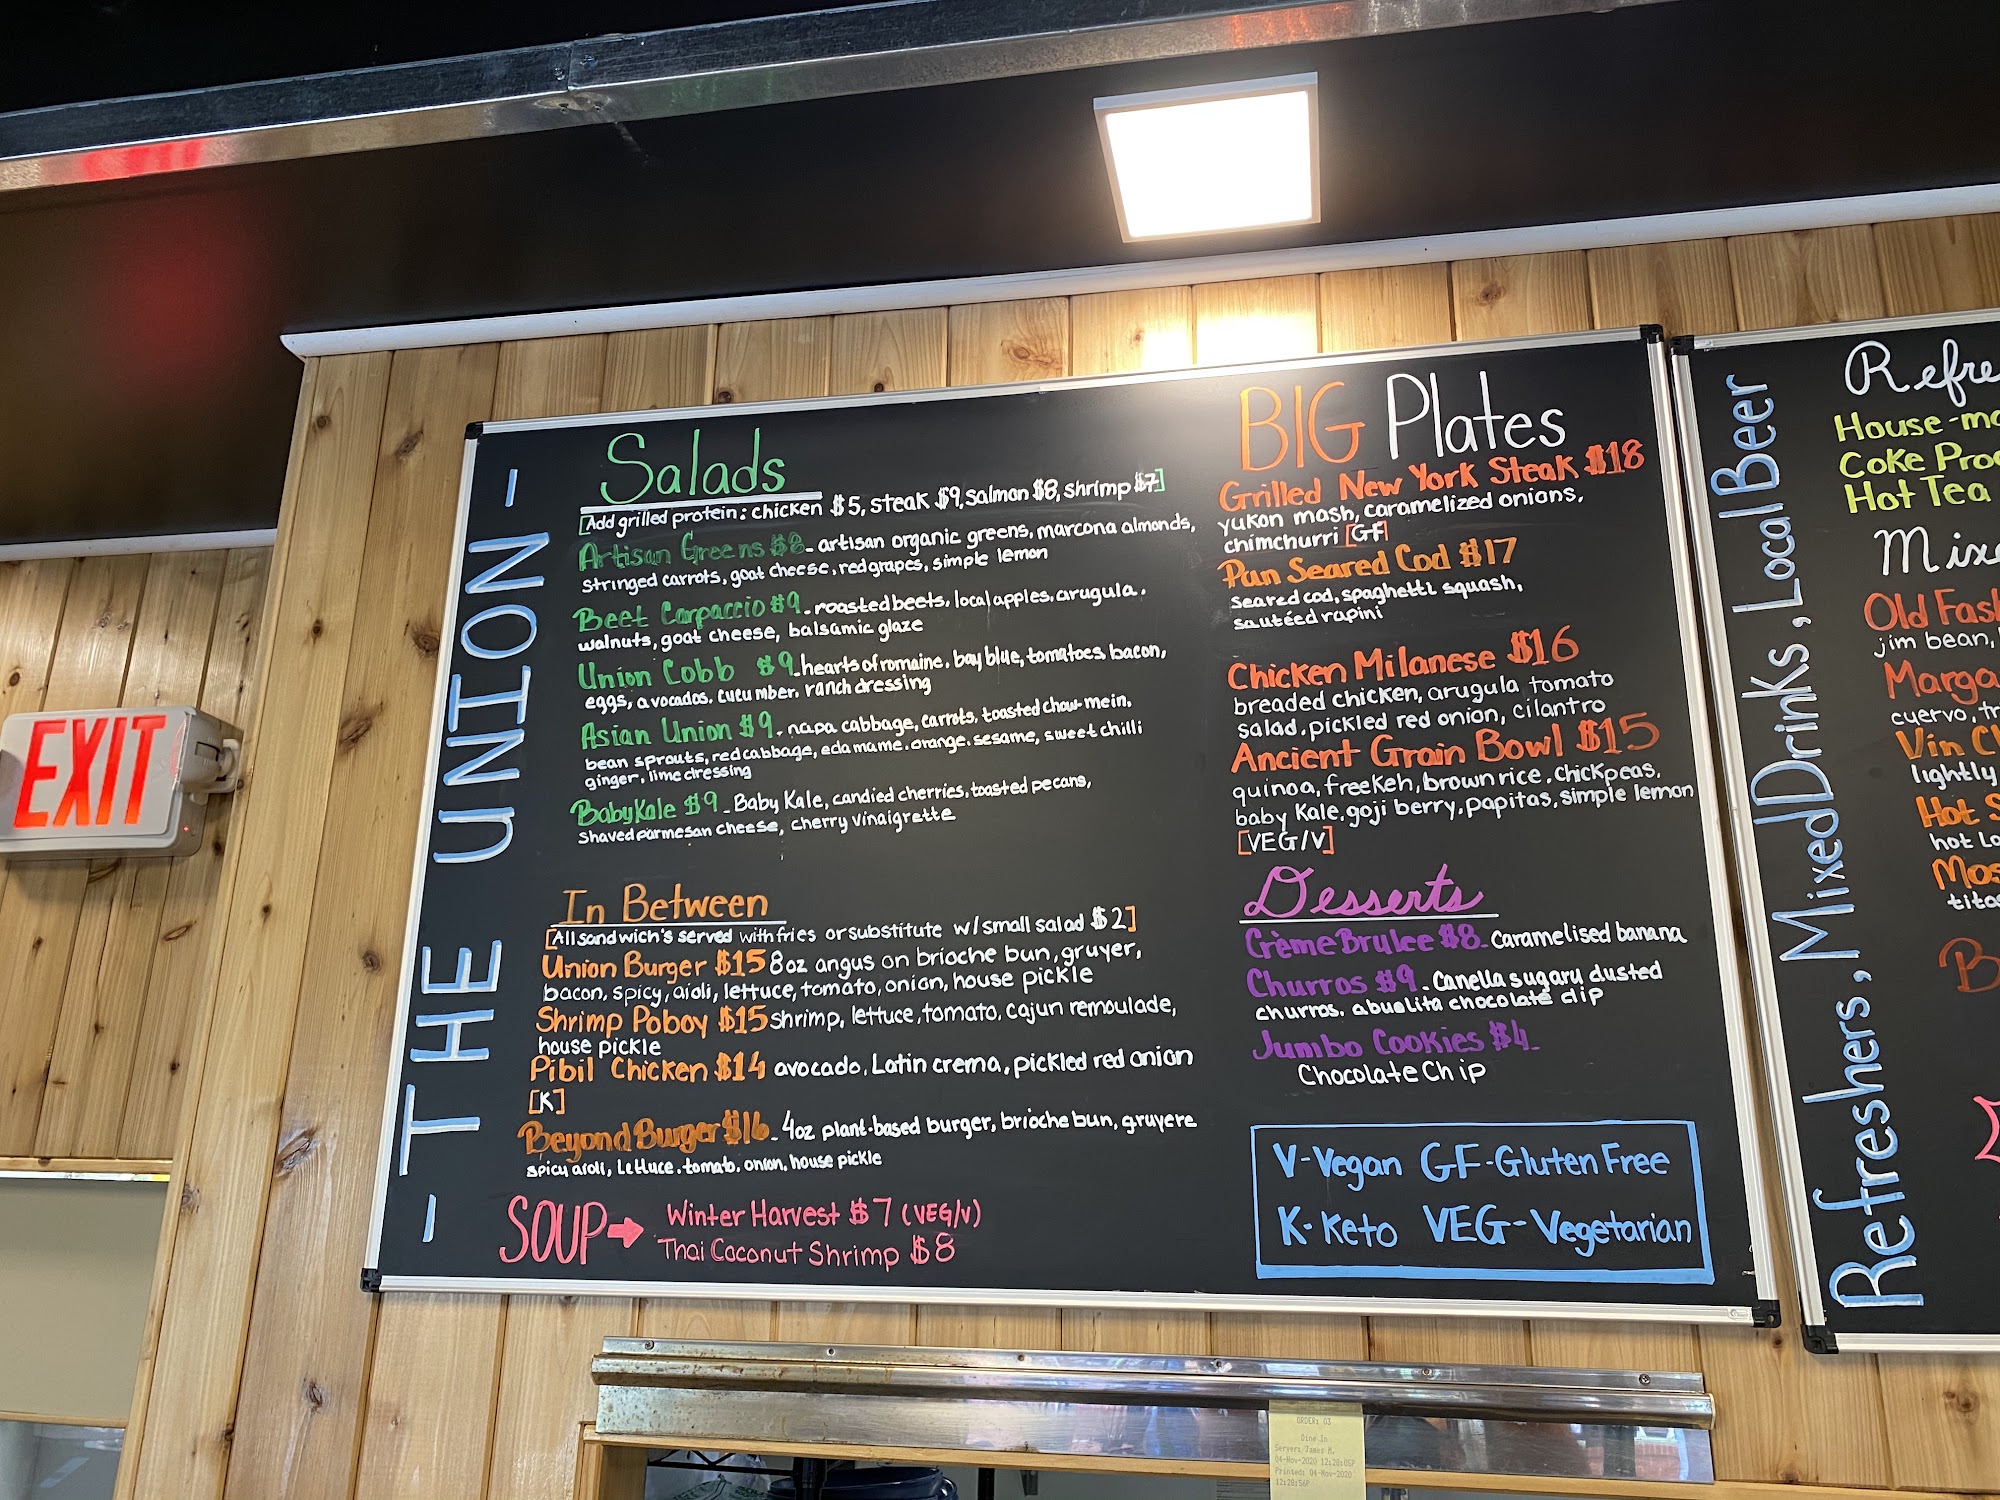 EXIT
- THE UNION -
Salads
[Add grilled protein: chicken $5, steak $9, salmon $8, shrimp $7]
Artisan Greens $8 - artisan organic greens, marcona almonds,
stringed carrots, goat cheese, red grapes, simple lemon
Beet Carpaccio $9 - roasted beets, local apples, arugula,
walnuts, goat cheese, balsamic glaze
Union Cobb $9 - hearts of romaine, bay blue, tomatoes, bacon,
eggs, avocados, cucumber, ranch dressing
Asian Union $9 - napa cabbage, carrots, toasted chow mein,
bean sprouts, red cabbage, edamame, orange, sesame, sweet chilli
ginger, lime dressing
Baby Kale $9 - Baby Kale, candied cherries, toasted pecans,
Shaved parmesan cheese, cherry vinaigrette
In Between
[All sandwich's served with fries or substitute w/ small salad $2]
Union Burger $15 8oz angus on brioche bun, gruyer,
bacon, spicy, aioli, lettuce, tomato, onion, house pickle
Shrimp Poboy $15 shrimp, lettuce, tomato, cajun remoulade,
house pickle
Pibil Chicken $14 avocado, Latin crema, pickled red onion
[K]
Beyond Burger $16 - 4oz plant-based burger, brioche bun, gruyere
spicy aioli, Lettuce, tomato, onion, house pickle
SOUP→ Winter Harvest $7 (VEG/V)
Thai Coconut Shrimp $8
BIG Plates
Grilled New York Steak $18
yukon mash, caramelized onions,
chimchurri [GF]
Pan Seared Cod $17
seared cod, spaghetti squash,
sautéed rapini
Chicken Milanese $16
breaded chicken, arugula tomato
salad, pickled red onion, cilantro
Ancient Grain Bowl $15
quinoa, freekeh, brown rice, chickpeas,
baby kale, goji berry, papitas, simple lemon
[VEG/V]
Desserts
Crème Brulee $8 - Caramelised banana
Churros $9 - Canella sugary dusted
churros, abuelita chocolate dip
Jumbo Cookies $4 -
Chocolate Chip
V-Vegan GF-Gluten Free
K-Keto VEG-Vegetarian
Refreshers, Mixed Drinks, Local Beer
Refre
House-ma
Coke Prod
Hot Tea
Mixe
Old Fash
jim bean,
Marga
cuervo, tr
Vin Ch
lightly
Hot S
hot Lo
Mos
tito
B
ORDER: 03
Dine In
Server: James M.
04-Nov-2020 12:28:05P
Printed: 04-Nov-2020
12:28:56P